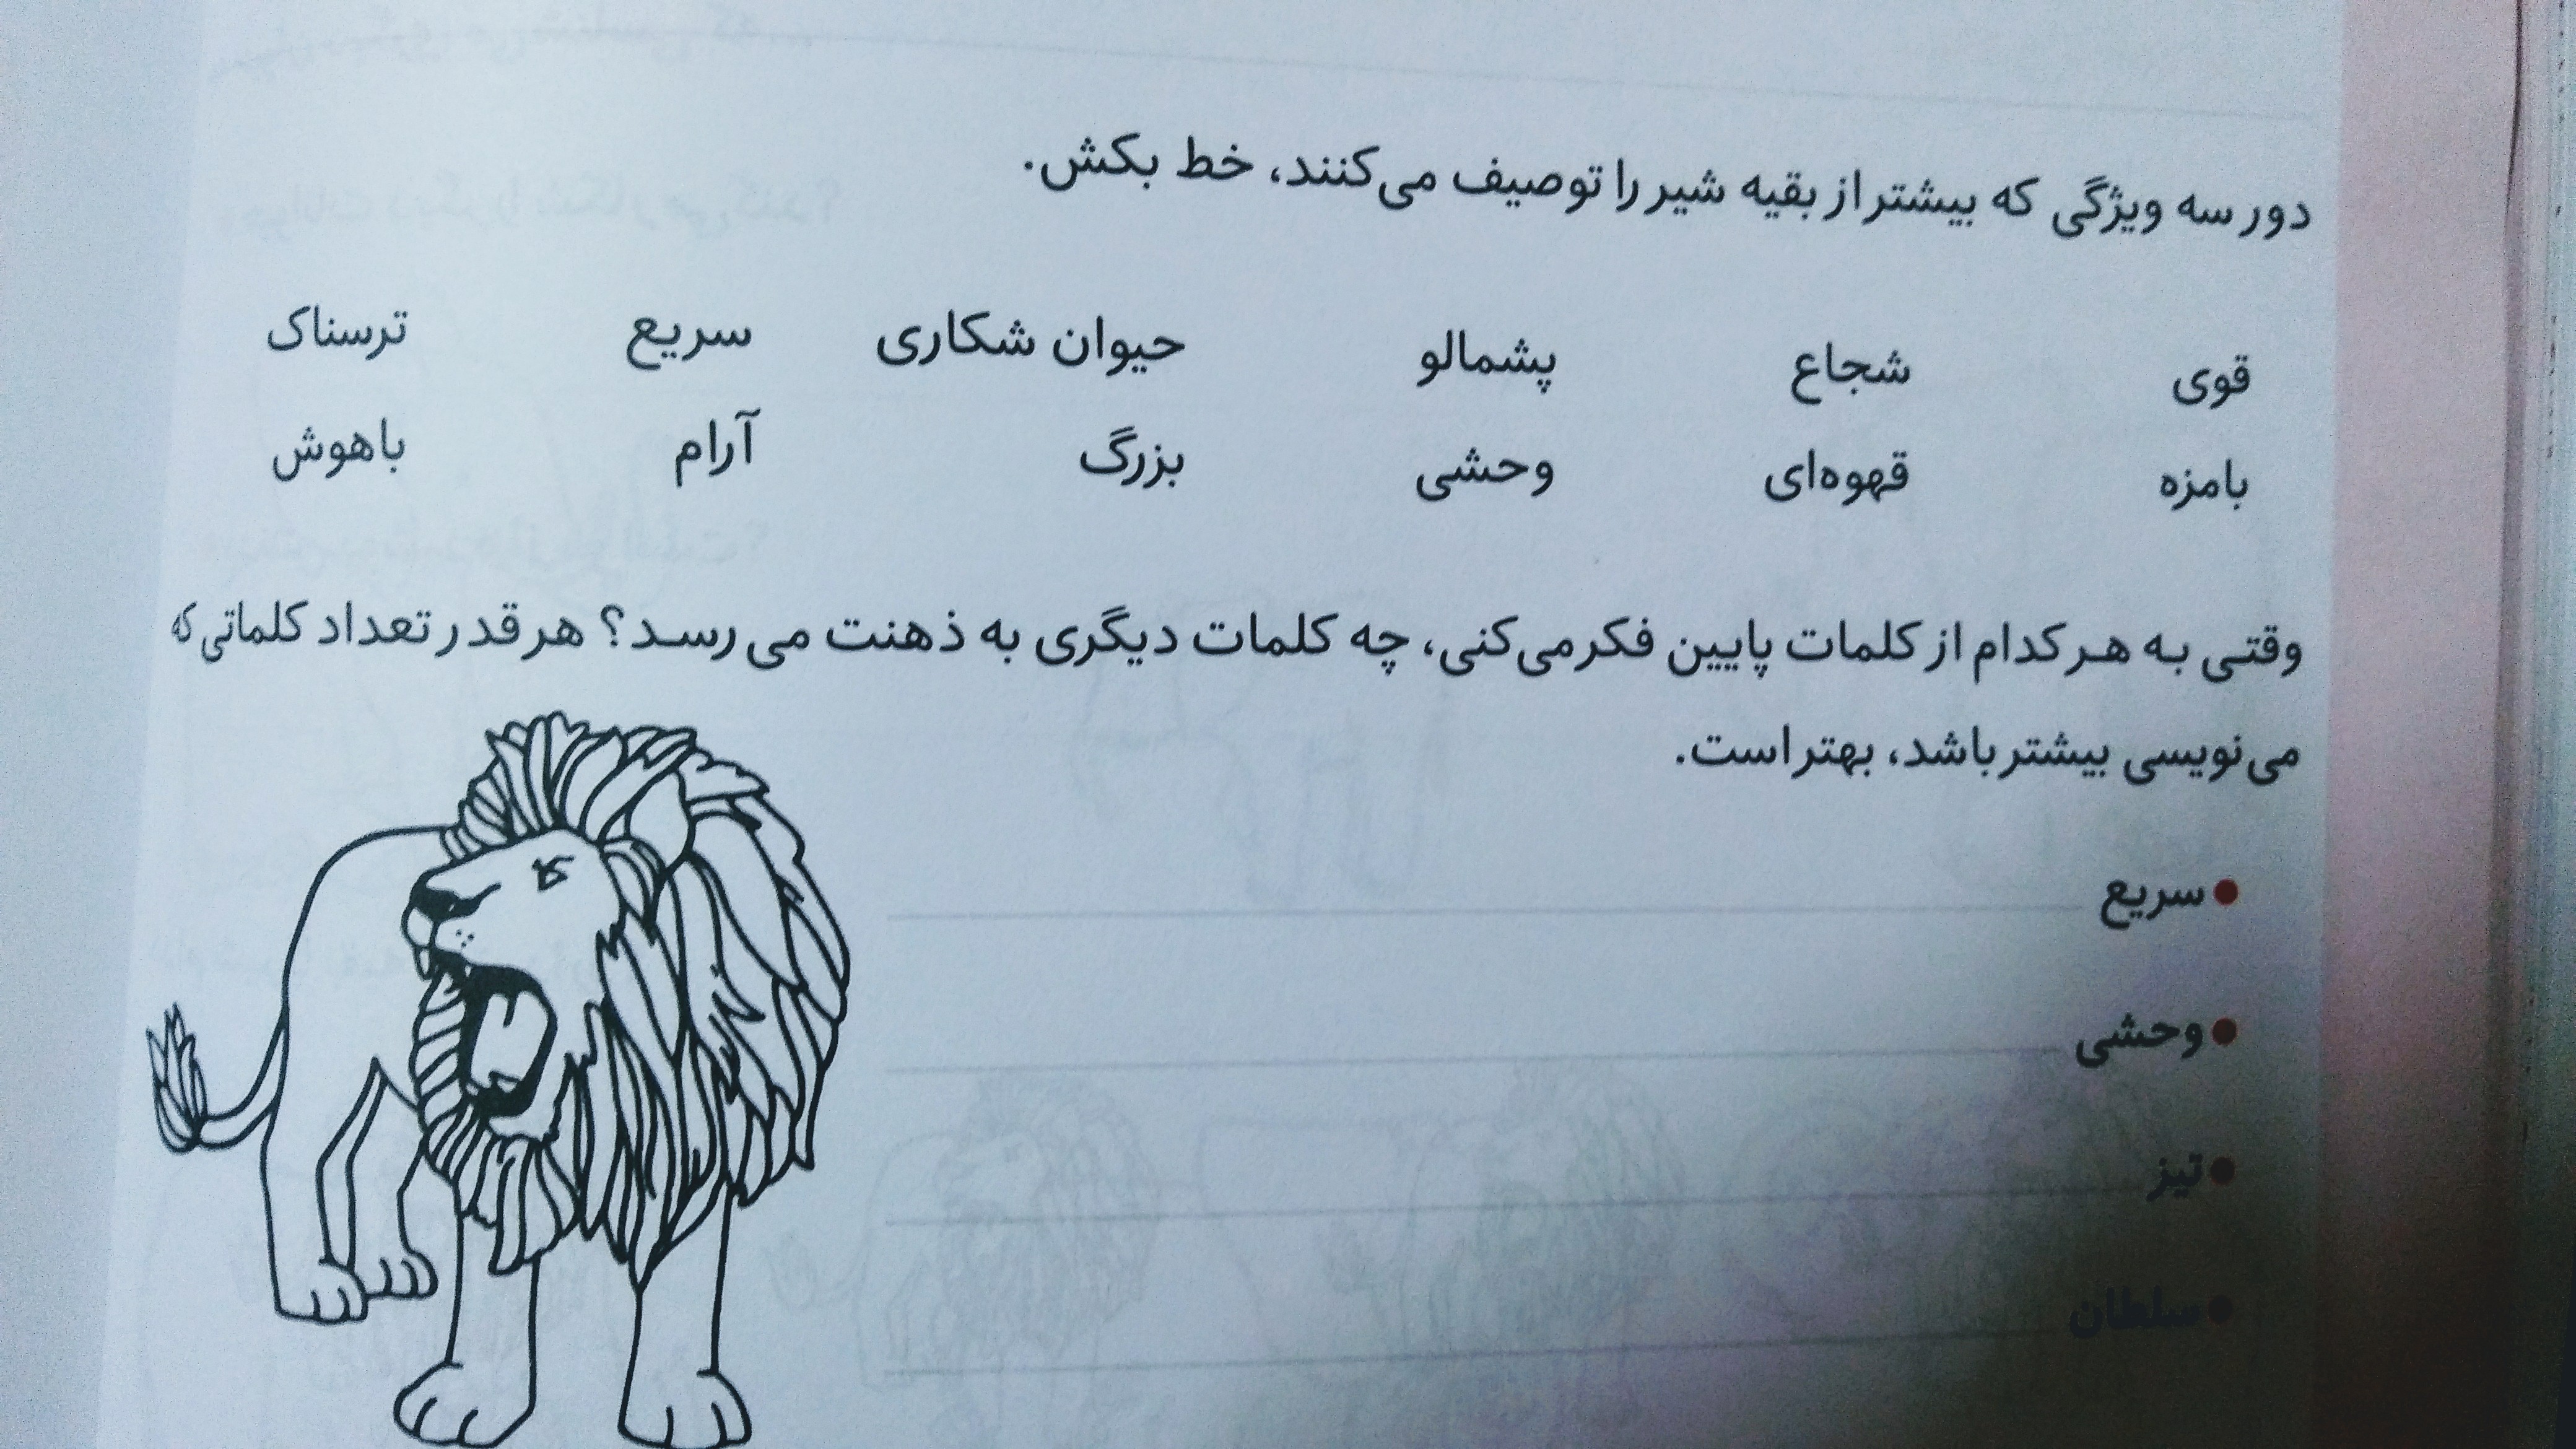 دور سه ویژگی که بیشتر از بقیه شیر را توصیف می‌کنند، خط بکش.
قوی شجاع پشمالو حیوان شکاری سریع ترسناک
بامزه قهوه‌ای وحشی بزرگ آرام باهوش
وقتی به هر کدام از کلمات پایین فکر می‌کنی، چه کلمات دیگری به ذهنت می‌رسد؟ هر قدر تعداد کلماتی که
می‌نویسی بیشتر باشد، بهتر است.
• سریع
• وحشی
• تیز
• سلطان